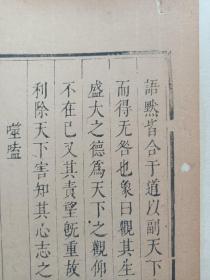 語默皆合于道以副天下
而得无咎也象曰觀其生
盛大之德爲天下之觀仰
不在已又其責望旣重故
利除天下害知其心志之
噬嗑